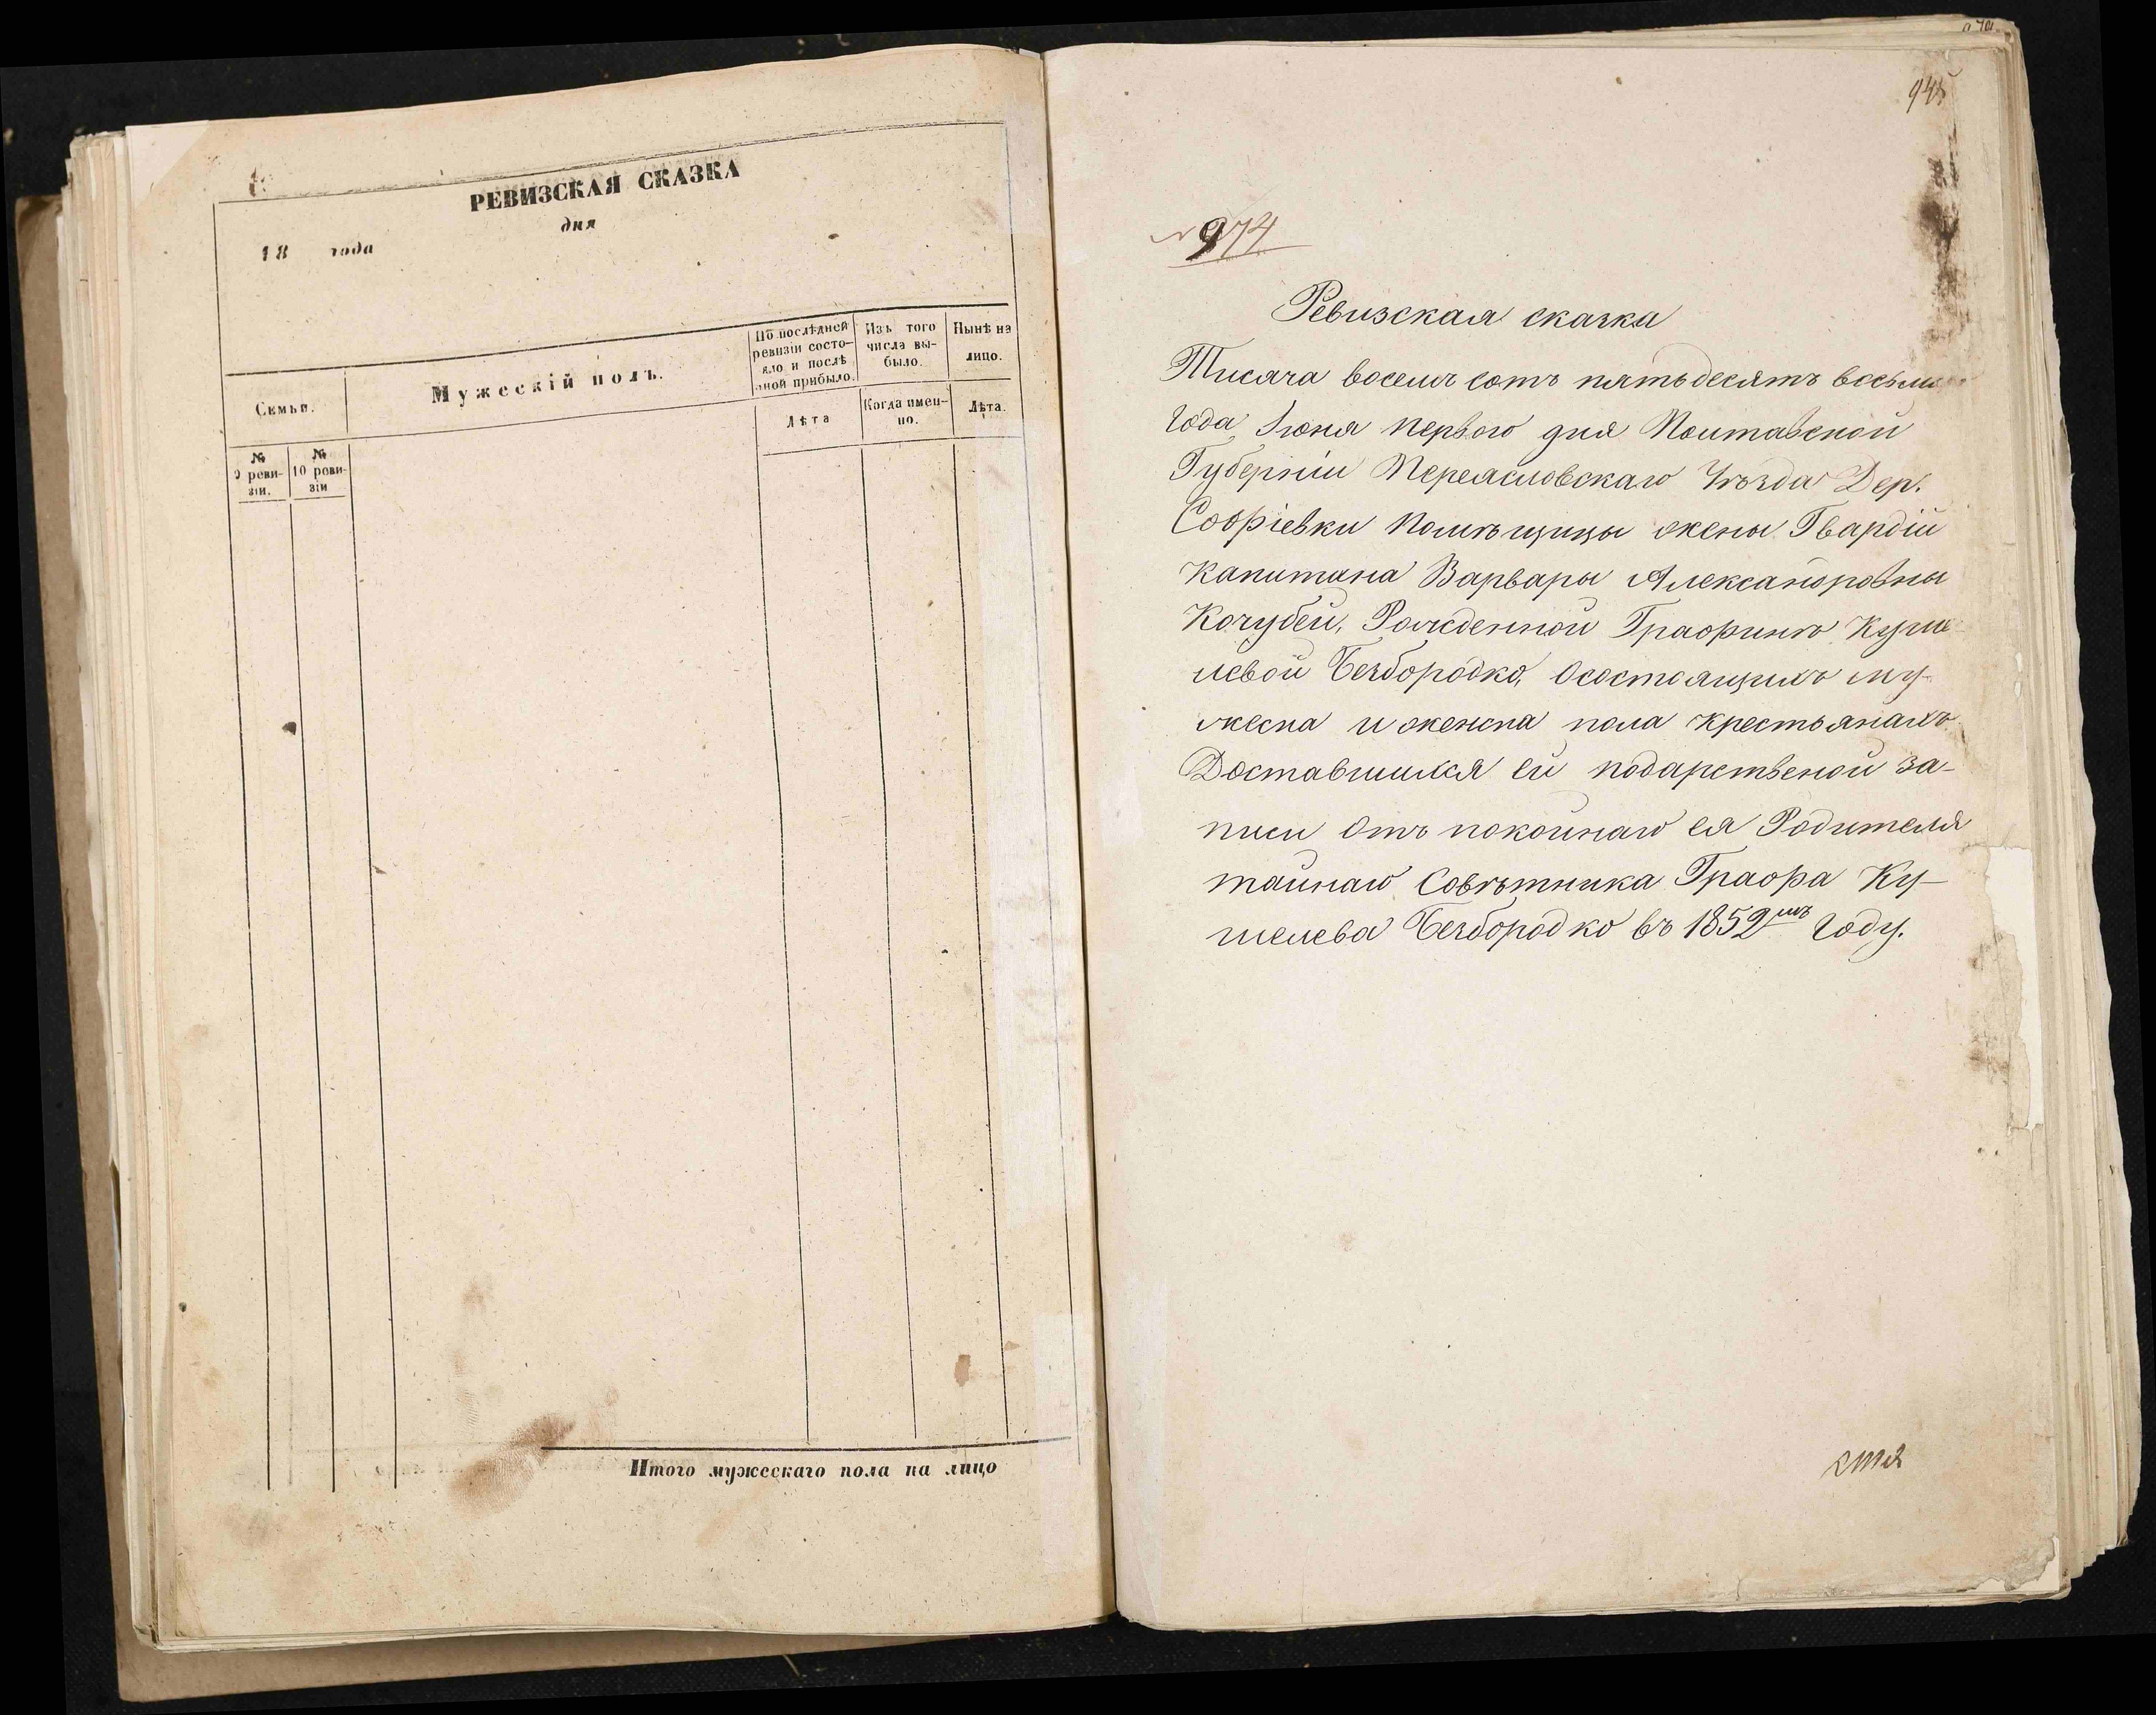 РЕВИЗСКАЯ СКАЗКА
дня
18 года
Семьи.
Мужескій полъ.
По послѣдней ревизіи состо-
яло и послѣ
оной прибыло.
Изъ того
числа вы-
было.
Нынѣ на
лицо.
Лѣта
Когда имен-
но.
Лѣта.
№
9 реви-
зіи.
№
10 реви-
зіи
Итого мужескаго пола на лицо
945
№ 974
Ревизская сказка
Тисяча восемъ сотъ пятьдесятъ восьм
Года, Іюня первого дня Полтавской
Губерніи Переясловскаго Уѣзда Дер.
Софіевки помѣщицы жены Гвардіи
Капитана Варвары Александровны
Кочубей, Рожденной Графинѣ Куше
левой Безбородко, Осостоящихъ му-
жеска и женска пола крестьянахъ.
Доставшихся ей подарственой за-
писи Отъ покойнаго ея Родителя
тайнаго Совѣтника Графа Ку-
шелева Безбородко въ 1852мъ Году.